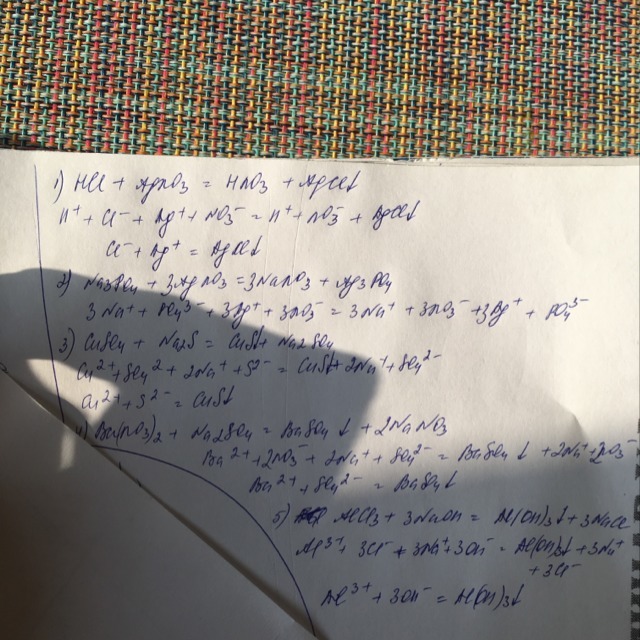 1) HCl + AgNO3 = HNO3 + AgCl↓
H⁺ + Cl⁻ + Ag⁺ + NO3⁻ = H⁺ + NO3⁻ + AgCl↓
Cl⁻ + Ag⁺ = AgCl↓
2) Na3PO4 + 3AgNO3 = 3NaNO3 + Ag3PO4
3Na⁺ + PO4³⁻ + 3Ag⁺ + 3NO3⁻ = 3Na⁺ + 3NO3⁻ + 3Ag⁺ + PO4³⁻
3) CuSO4 + Na2S = CuS↓ + Na2SO4
Cu²⁺ + SO4²⁻ + 2Na⁺ + S²⁻ = CuS↓ + 2Na⁺ + SO4²⁻
Cu²⁺ + S²⁻ = CuS↓
4) Ba(NO3)2 + Na2SO4 = BaSO4↓ + 2NaNO3
Ba²⁺ + 2NO3⁻ + 2Na⁺ + SO4²⁻ = BaSO4↓ + 2Na⁺ + 2NO3⁻
Ba²⁺ + SO4²⁻ = BaSO4↓
5) AlCl3 + 3NaOH = Al(OH)3↓ + 3NaCl
Al³⁺ + 3Cl⁻ + 3Na⁺ + 3OH⁻ = Al(OH)3↓ + 3Na⁺
+ 3Cl⁻
Al³⁺ + 3OH⁻ = Al(OH)3↓